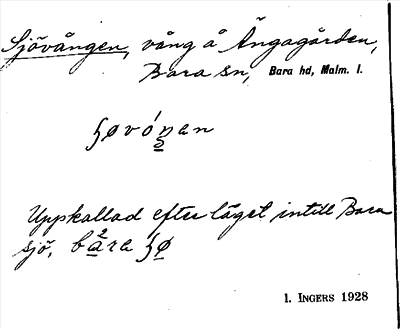 Sjövången, vång å Ängagården,
Bara sn, Bara hd, Malm. l.
Uppkallad efter läget intill Bara
sjö,
I. INGERS 1928